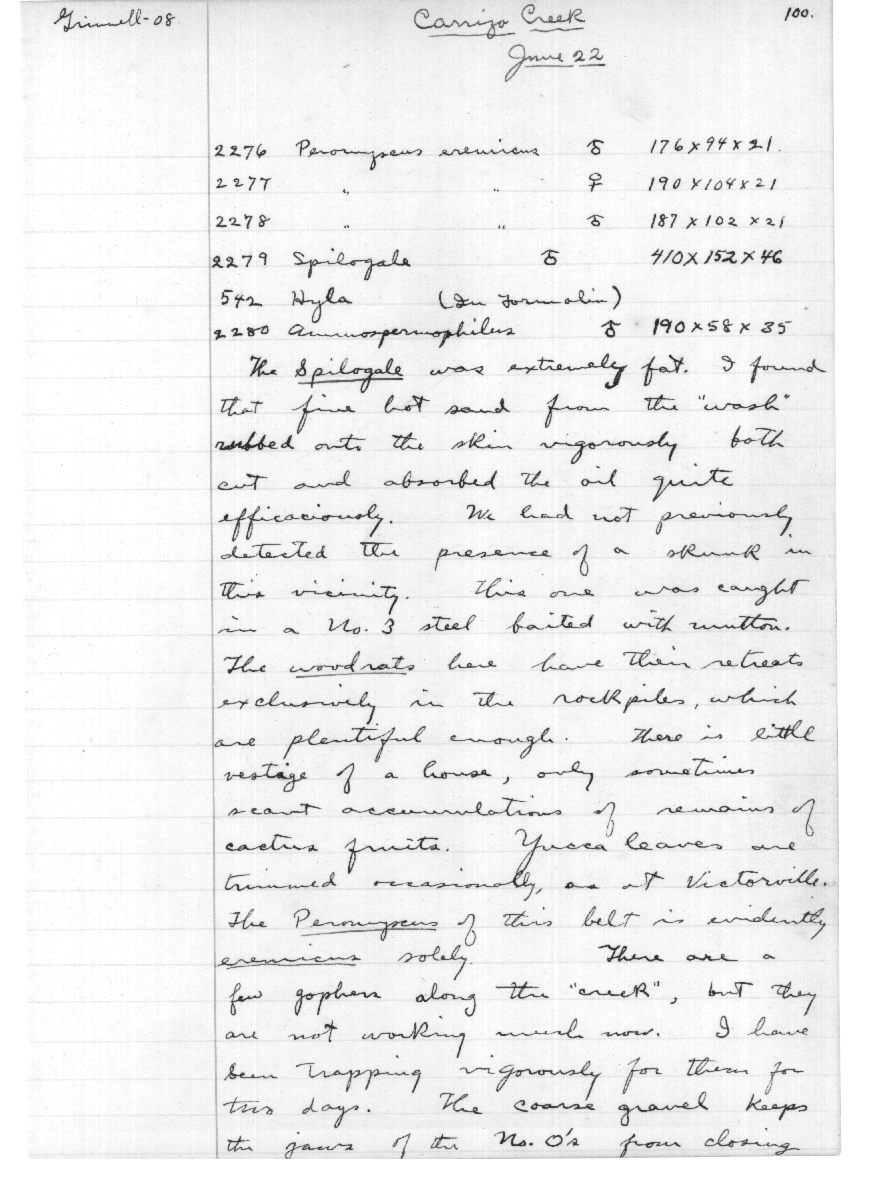 Grinnell-08
Carrizo Creek
100.
June 22
2276 Peromyscus eremicus ♂ 176×94×21.
2277 " " ♀ 190×104×21
2278 " " ♂ 187×102×21
2279 Spilogale ♂ 410×152×46
542 Hyla (In Formalin)
2280 Ammospermophilus ♂ 190×58×35
The Spilogale was extremely fat. I found
that fine hot sand from the "wash"
rubbed onto the skin vigorously both
cut and absorbed the oil quite
efficaciously. We had not previously
detected the presence of a skunk in
this vicinity. This one was caught
in a No. 3 steel baited with mutton.
The woodrats here have their retreats
exclusively in the rockpiles, which
are plentiful enough. There is little
vestige of a house, only sometimes
scant accumulations of remains of
cactus fruits. Yucca leaves are
trimmed occasionally, as at Victorville.
The Peromyscus of this belt is evidently
eremicus solely. There are a
few gophers along the "creek", but they
are not working much now. I have
been trapping vigorously for them for
two days. The coarse gravel keeps
the jaws of the No. 0's from closing